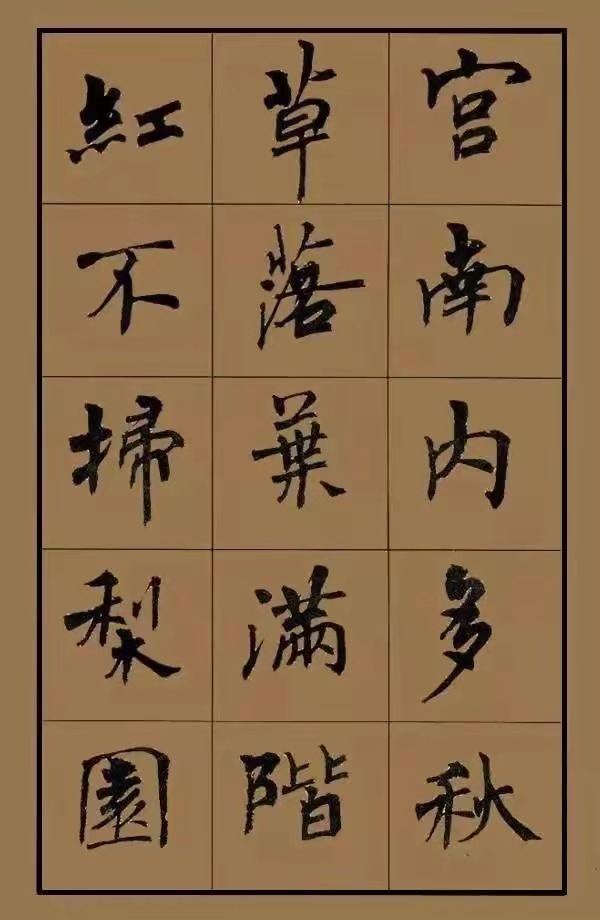 宫南内多秋
草落葉滿階
紅不掃梨園